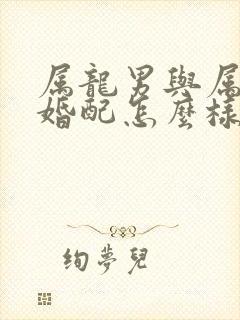 属龍男與属
婚配怎麼樣
絢夢兒